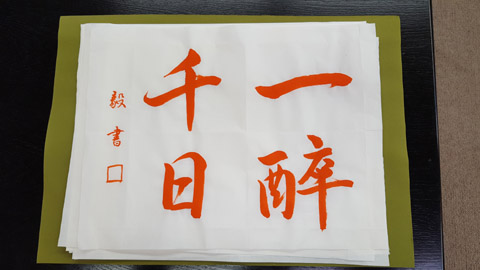 一醉
千日
毅書